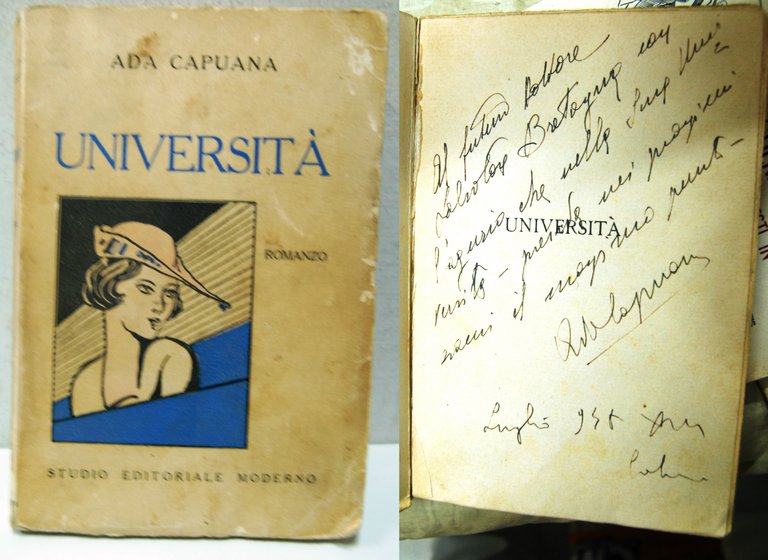 ADA CAPUANA
UNIVERSITÀ
ROMANZO
STUDIO EDITORIALE MODERNO
Al futuro Dottore
Salvatore Bretagna con
l'augurio che nella Sua Uni
versità - prenda nei prossimi
esami il massimo punto -
UNIVERSITÀ
Capuana
Luglio